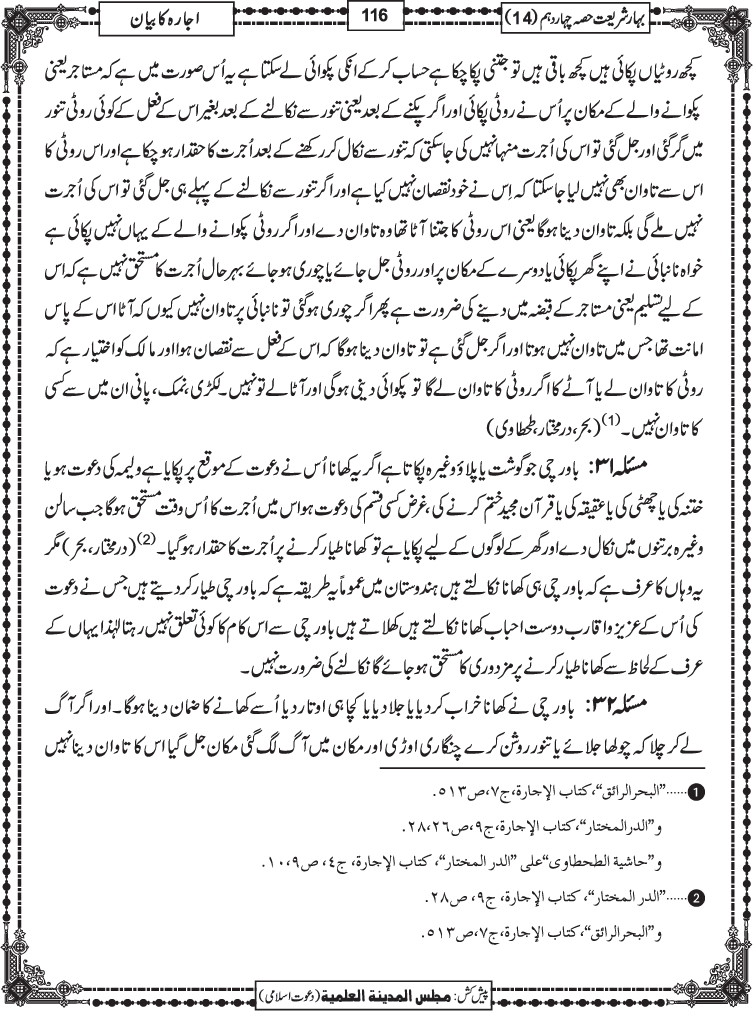 بہار شریعت حصہ چہاردہم (14)
116
اجارہ کا بیان
کچھ روٹیاں پکائی ہیں کچھ باقی ہیں تو جتنی پکا چکا ہے حساب کرکے انکی پکوائی لے سکتا ہے یہ اُس صورت میں ہے کہ مستاجر یعنی
پکوانے والے کے مکان پر اُس نے روٹی پکائی اور اگر پکنے کے بعد یعنی تنور سے نکالنے کے بعد بغیر اس کے فعل کے کوئی روٹی تنور
میں گر گئی اور جل گئی تو اس کی اُجرت منہا نہیں کی جاسکتی کہ تنور سے نکال کر رکھنے کے بعد اُجرت کا حقدار ہو چکا ہے اور اس روٹی کا
اس سے تاوان بھی نہیں لیا جاسکتا کہ اِس نے خود نقصان نہیں کیا ہے اور اگر تنور سے نکالنے کے پہلے ہی جل گئی تو اس کی اُجرت
نہیں ملے گی بلکہ تاوان دینا ہوگا یعنی اس روٹی کا جتنا آٹا تھا وہ تاوان دے اور اگر روٹی پکوانے والے کے یہاں نہیں پکائی ہے
خواہ نانبائی نے اپنے گھر پکائی یا دوسرے کے مکان پر اور روٹی جل جائے یا چوری ہو جائے بہرحال اُجرت کا مستحق نہیں ہے کہ اس
کے لیے تسلیم یعنی مستاجر کے قبضہ میں دینے کی ضرورت ہے پھر اگر چوری ہو گئی تو نانبائی پر تاوان نہیں کیوں کہ آٹا اس کے پاس
امانت تھا جس میں تاوان نہیں ہوتا اور اگر جل گئی ہے تو تاوان دینا ہوگا کہ اس کے فعل سے نقصان ہوا اور مالک کو اختیار ہے کہ
روٹی کا تاوان لے یا آٹے کا اگر روٹی کا تاوان لے گا تو پکوائی دینی ہوگی اور آٹا لے تو نہیں۔ لکڑی، نمک، پانی ان میں سے کسی
کا تاوان نہیں۔(1) (بحر، درمختار، طحطاوی)
مسئلہ ۳۱: باورچی جو گوشت یا پلاؤ وغیرہ پکاتا ہے اگر یہ کھانا اُس نے دعوت کے موقع پر پکایا ہے ولیمہ کی دعوت ہو یا
ختنہ کی یا چھٹی کی یا عقیقہ کی یا قرآن مجید ختم کرنے کی، غرض کسی قسم کی دعوت ہو اس میں اُجرت کا اُس وقت مستحق ہوگا جب سالن
وغیرہ برتنوں میں نکال دے اور گھر کے لوگوں کے لیے پکایا ہے تو کھانا طیار کرنے پر اُجرت کا حقدار ہو گیا۔(2) (درمختار، بحر) مگر
یہ وہاں کا عرف ہے کہ باورچی ہی کھانا نکالتے ہیں ہندوستان میں عموماً یہ طریقہ ہے کہ باورچی طیار کر دیتے ہیں جس نے دعوت
کی اُس کے عزیز و اقارب دوست احباب کھانا نکالتے ہیں کھلاتے ہیں باورچی سے اس کام کا کوئی تعلق نہیں رہتا لہٰذا یہاں کے
عرف کے لحاظ سے کھانا طیار کرنے پر مزدوری کا مستحق ہو جائے گا نکالنے کی ضرورت نہیں۔
مسئلہ ۳۲: باورچی نے کھانا خراب کر دیا یا جلا دیا یا کچا ہی اوتار دیا اُسے کھانے کا ضمان دینا ہوگا۔ اور اگر آگ
لے کر چلا کہ چولھا جلائے یا تنور روشن کرے چنگاری اوڑی اور مکان میں آگ لگ گئی مکان جل گیا اس کا تاوان دینا نہیں
1......”البحرالرائق“، کتاب الإجارۃ، ج۷، ص۵۱۳.
و”الدرالمختار“، کتاب الإجارۃ، ج۹، ص۲۸،۲۶.
و”حاشیۃ الطحطاوی“علی ”الدر المختار“، کتاب الإجارۃ، ج٤، ص۱۰،۹.
2......”الدر المختار“، کتاب الإجارۃ، ج۹، ص۲۸.
و”البحرالرائق“، کتاب الإجارۃ، ج۷، ص۵۱۳.
پیش کش: مجلس المدینة العلمیة (دعوت اسلامی)